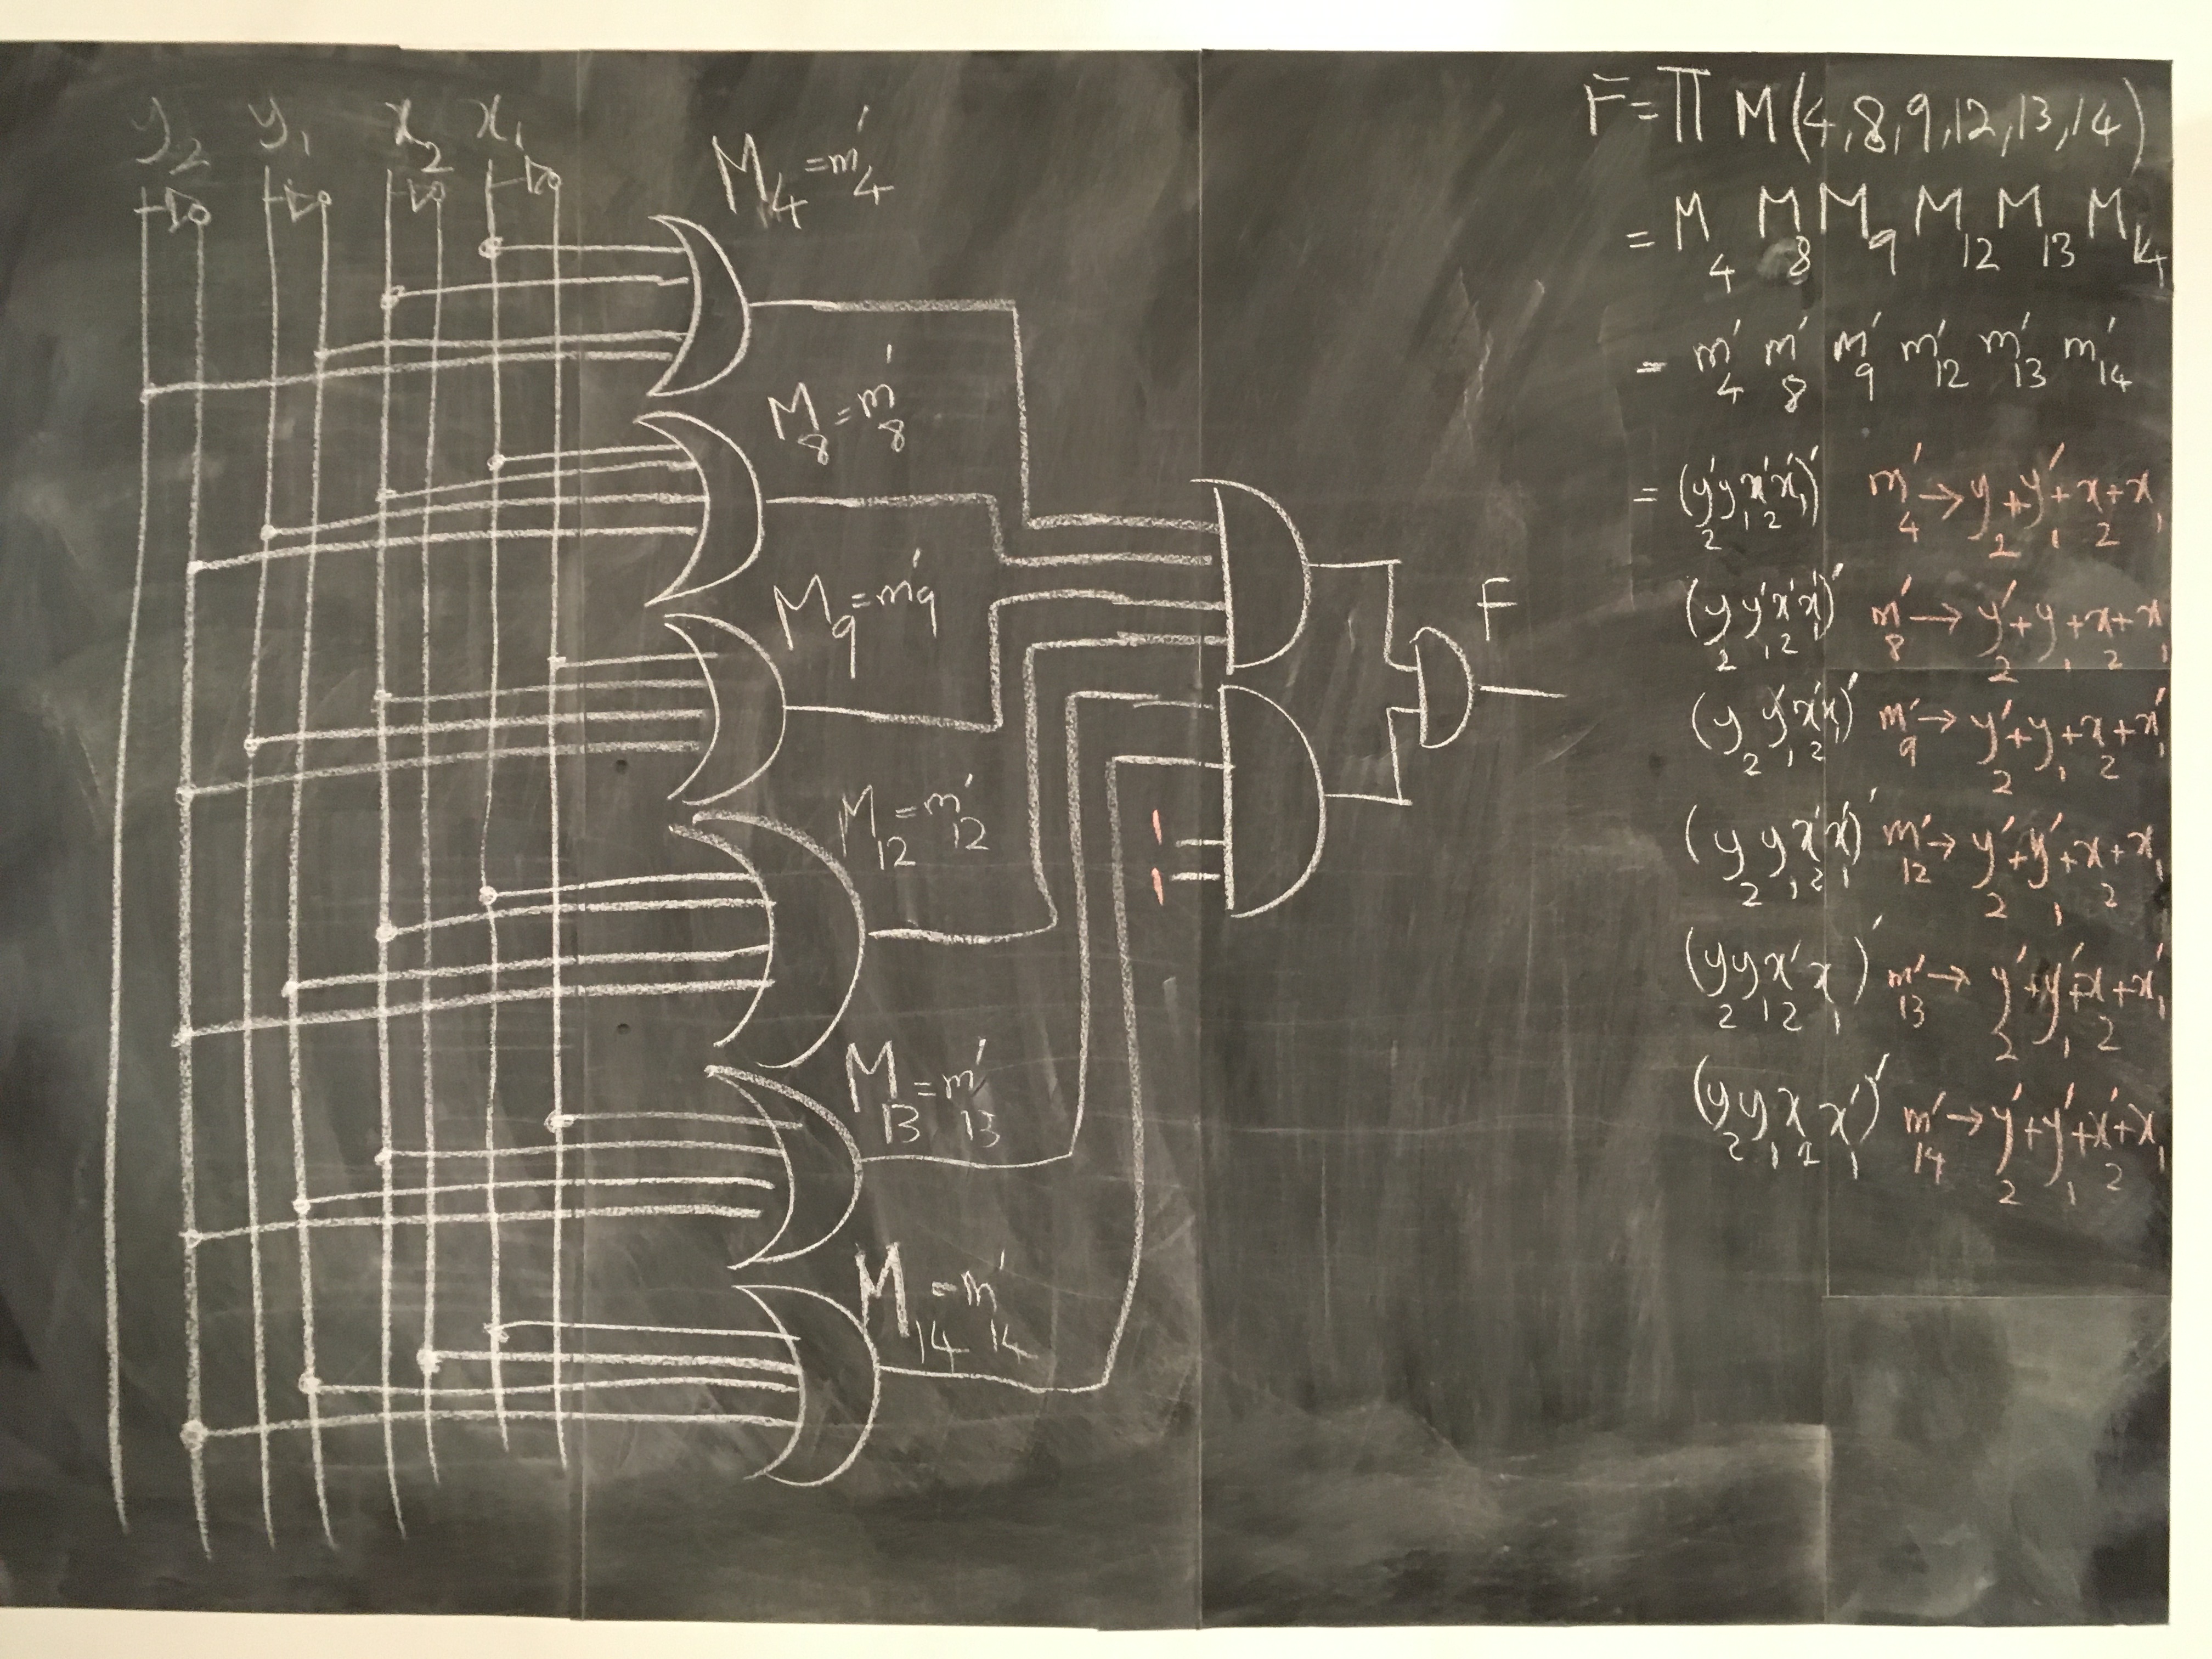 y₂ y₁ x₂ x₁
M₄ = m₄'
M₈ = m₈'
M₉ = m₉'
M₁₂ = m₁₂'
M₁₃ = m₁₃'
M₁₄ = m₁₄'
1
1
F
F = ∏ M(4,8,9,12,13,14)
= M₄ M₈ M₉ M₁₂ M₁₃ M₁₄
= m₄' m₈' m₉' m₁₂' m₁₃' m₁₄'
= (y₂'y₁x₂'x₁')' m₄' → y₂+y₁'+x₂+x₁
(y₂y₁'x₂'x₁')' m₈' → y₂'+y₁+x₂+x₁
(y₂y₁'x₂'x₁)' m₉' → y₂'+y₁+x₂+x₁'
(y₂y₁x₂'x₁')' m₁₂' → y₂'+y₁'+x₂+x₁
(y₂y₁x₂'x₁)' m₁₃' → y₂'+y₁'+x₂+x₁'
(y₂y₁x₂x₁')' m₁₄' → y₂'+y₁'+x₂'+x₁